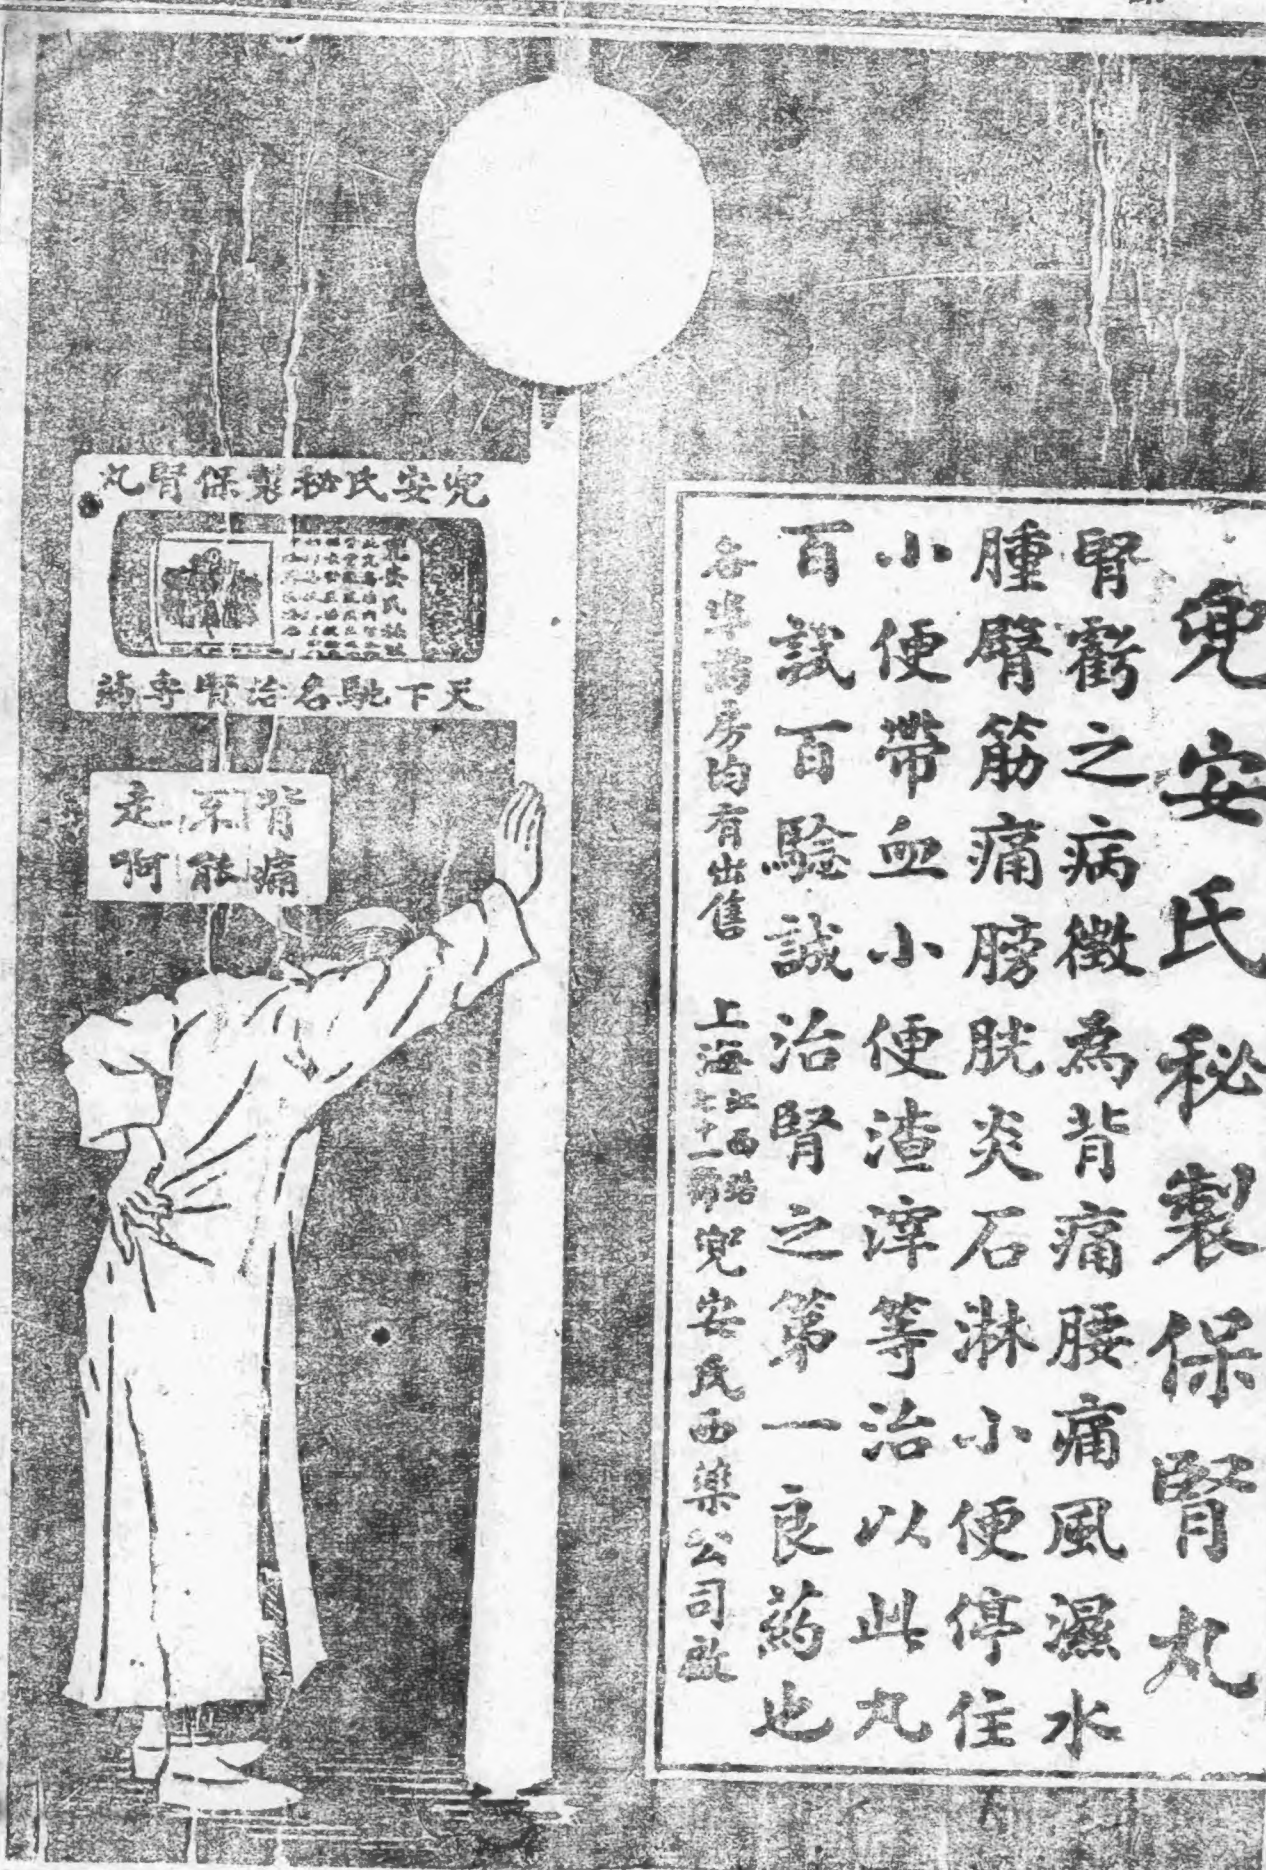 兜安氏秘製保腎丸
腎虧之病徵為背痛腰痛風濕水
腫臂筋痛膀胱炎石淋小便停住
小便帶血小便渣滓等治以此丸
百試百驗誠治腎之第一良藥也
各埠藥房均有出售
上海
江西路
七十一號
兜安氏西藥公司啟
兜安氏秘製保腎丸
兜安氏秘製
天下馳名治腎專藥
背痛
不能
走啊